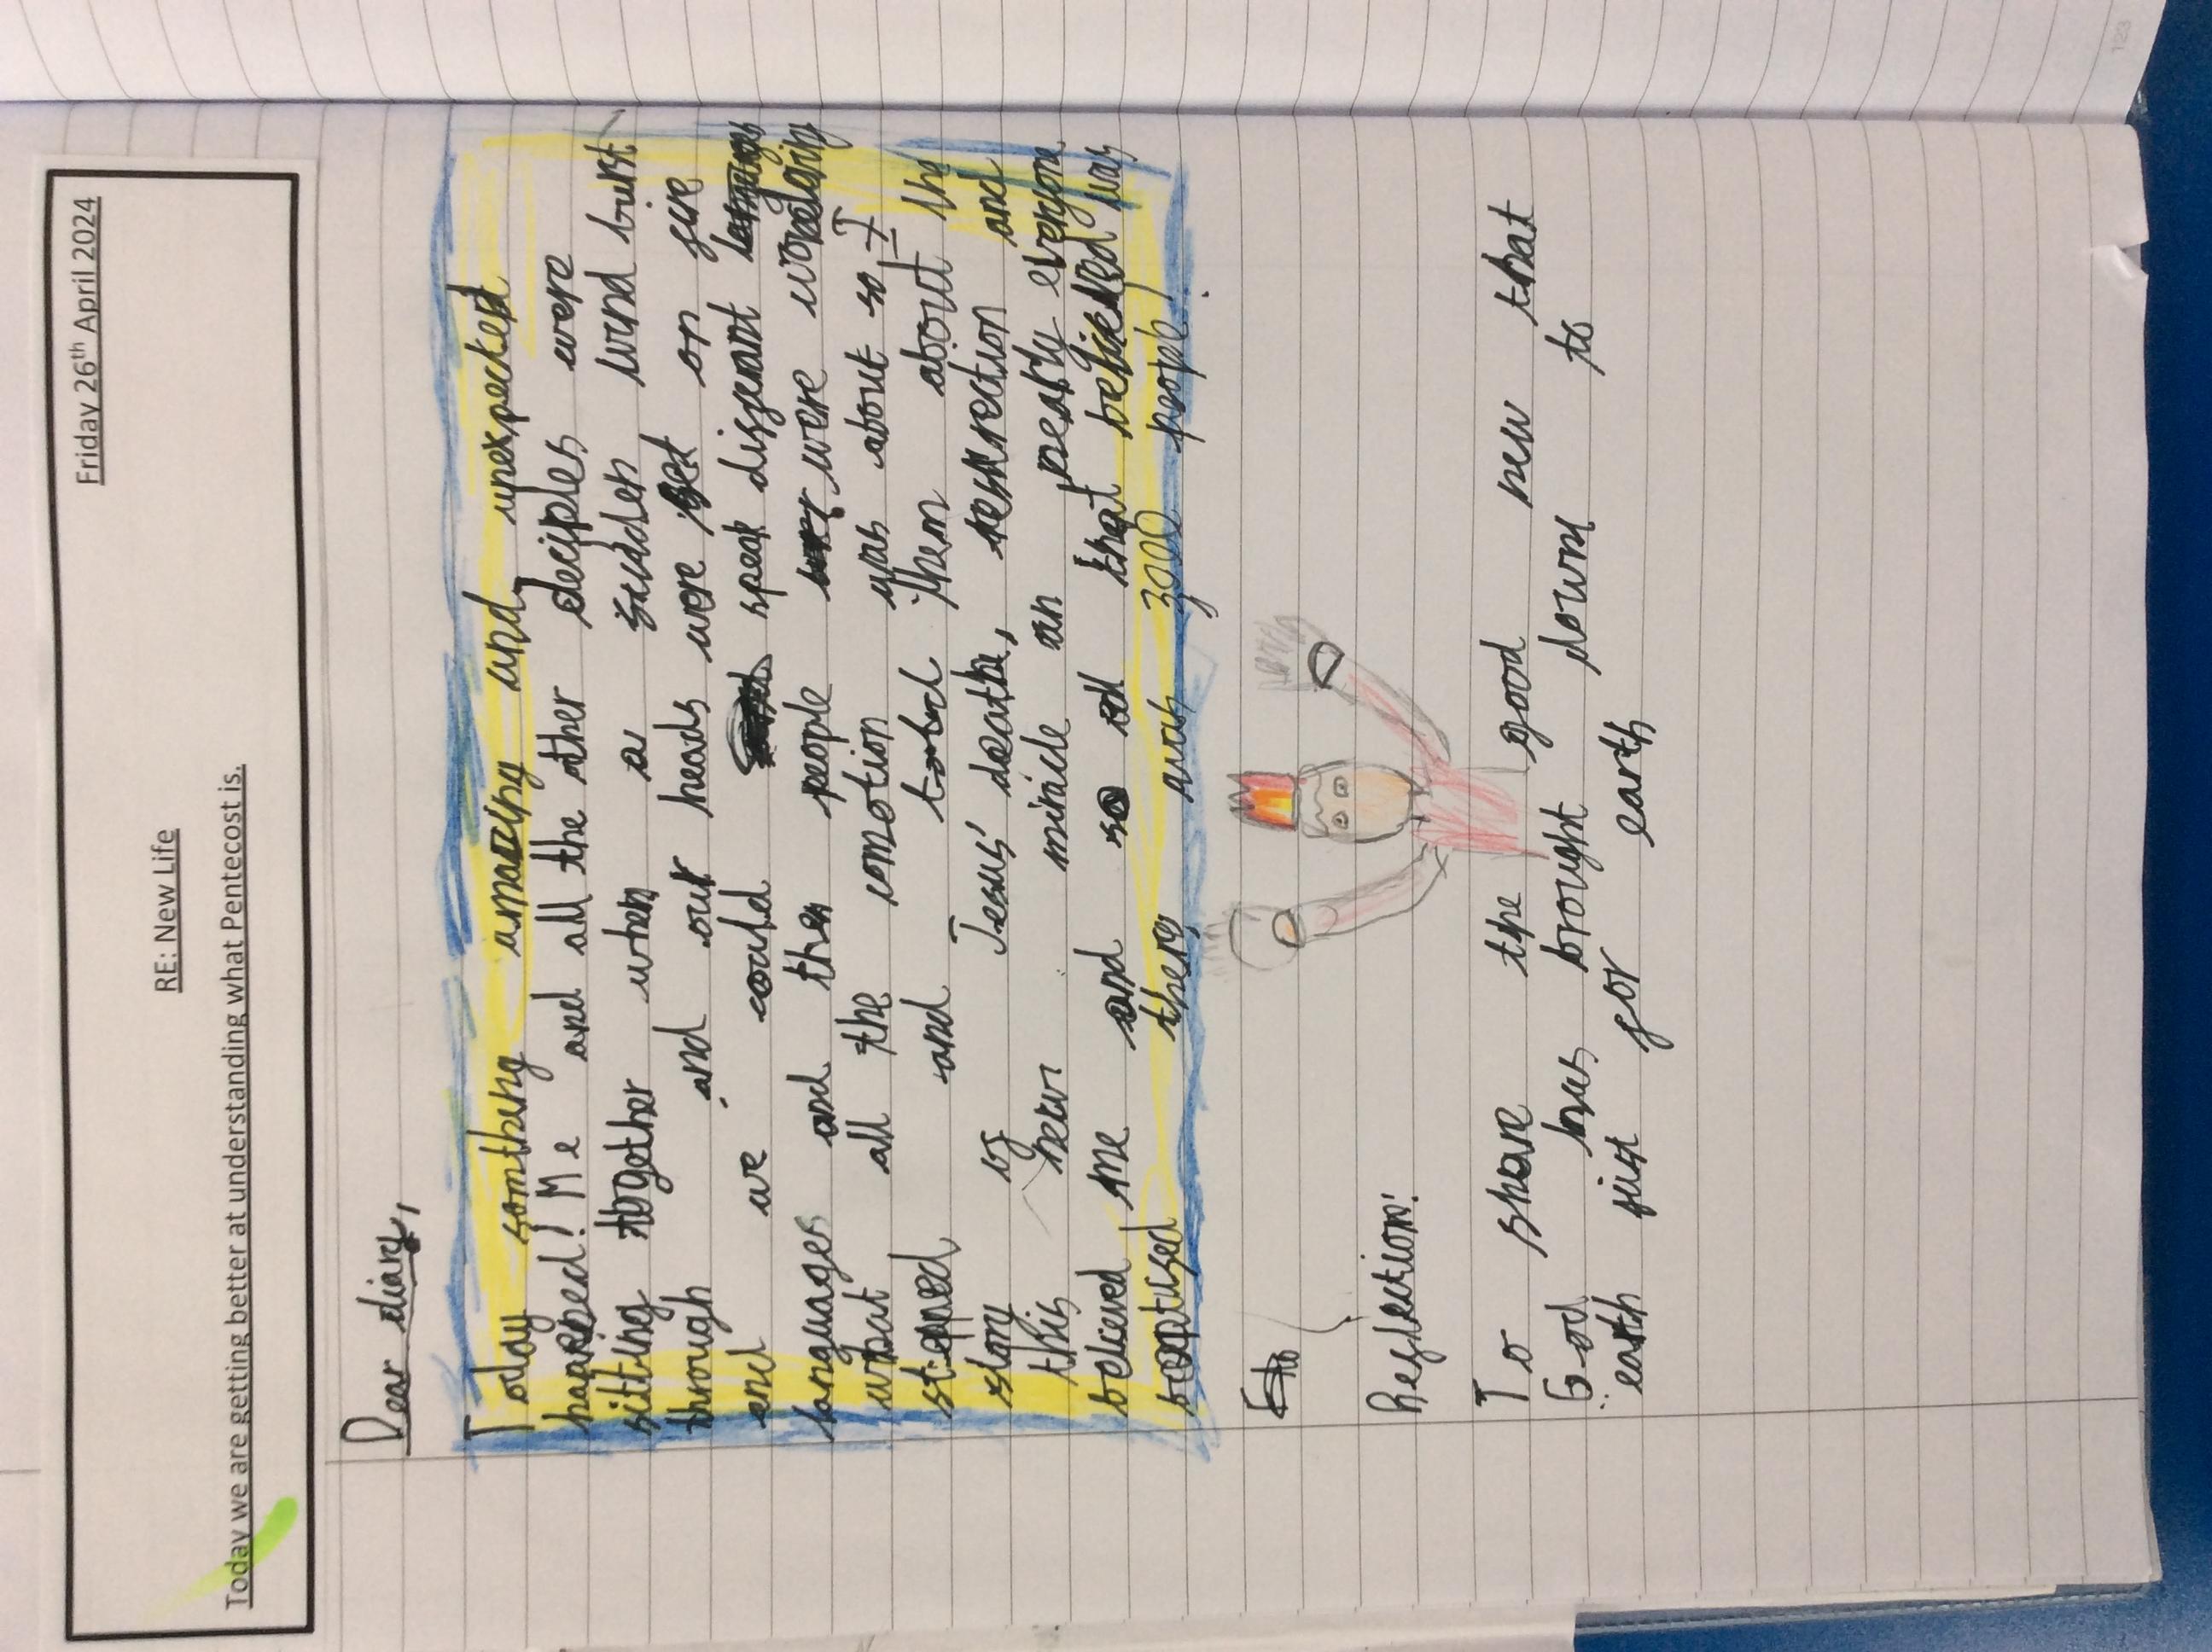 Friday 26th April 2024
RE: New Life
Today we are getting better at understanding what Pentecost is.
Dear diary,
Today somthing amazing and unexpected
happed! Me and all the other deciples were
sitting together when a sudden wind burst
through and our heads were set on fire
and we could speak disferant
languages and then people were wondering
what all the comotion was about so I
stopped and told them about the
story of Jesus' death, resurrection and
this new miracle an nearly everyone
believed me and so all that believed was
baptused there was 3000 people.
Reflection:
To share the good new that
God has brought down to
earth just for earth
123